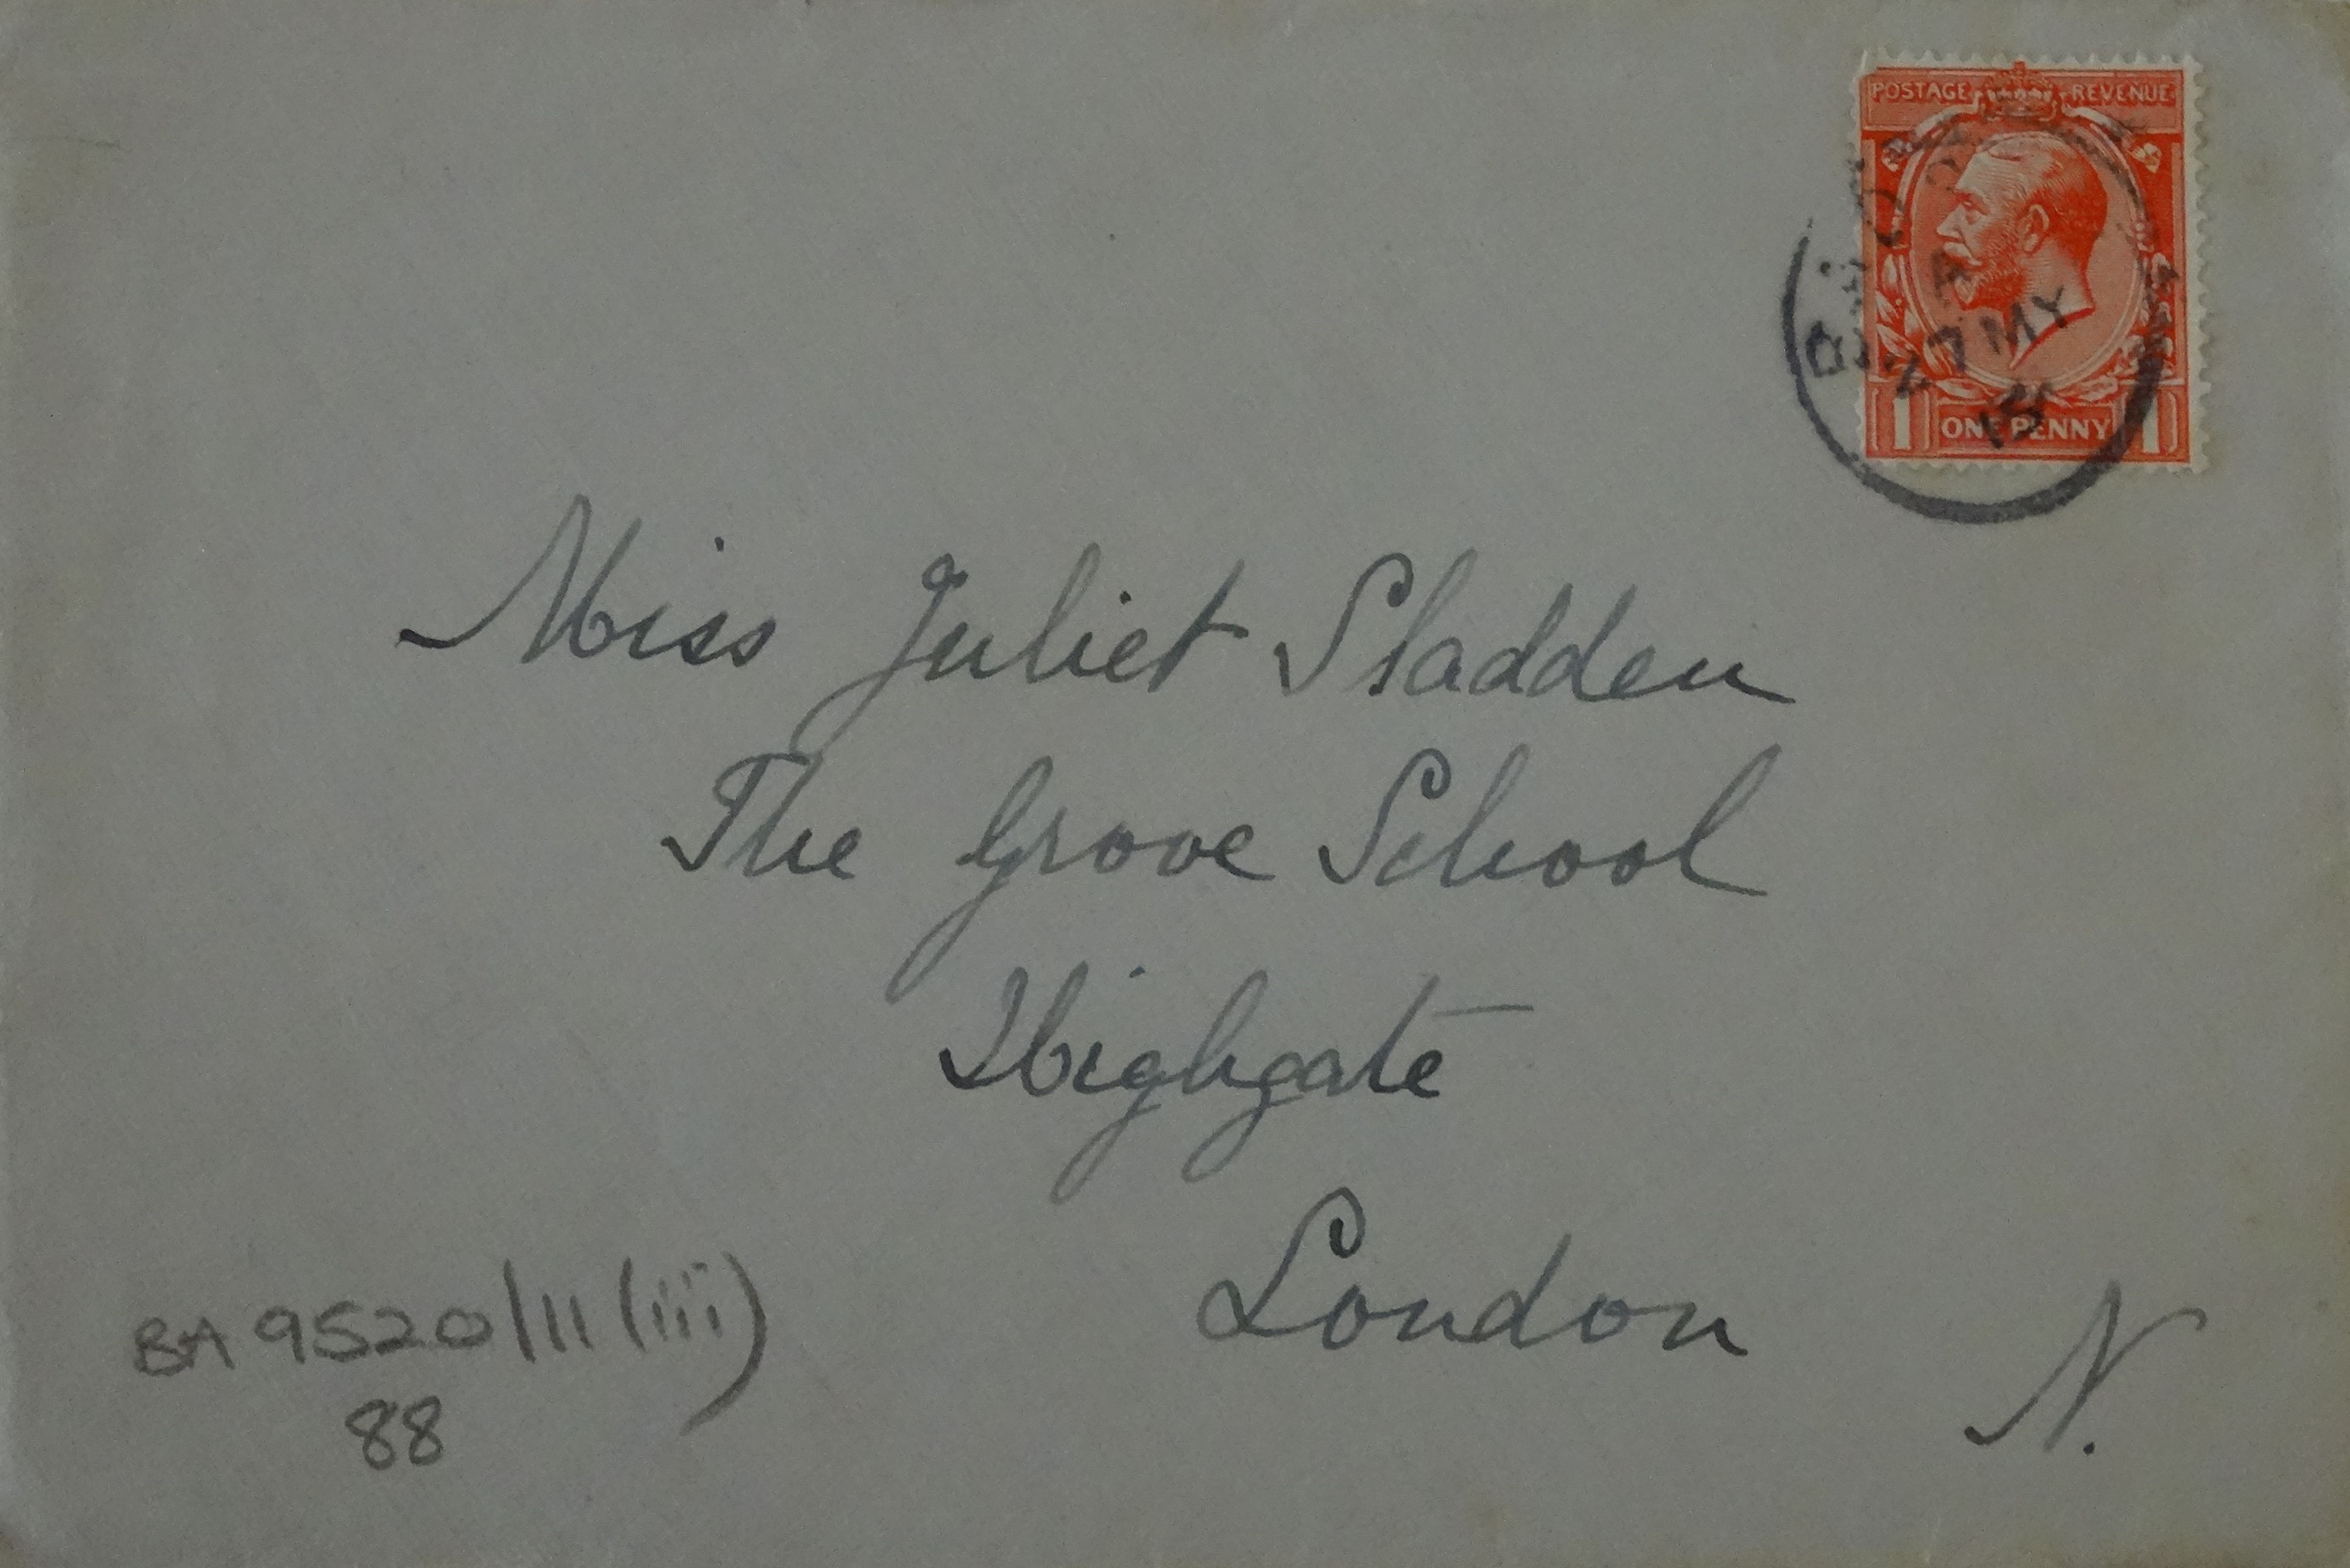 POSTAGE REVENUE
A
27 MY
1 ONE PENNY 1
Miss Juliet Sladden
The Grove School
Highgate
London
N.
BA 9520/11 (iii)
88